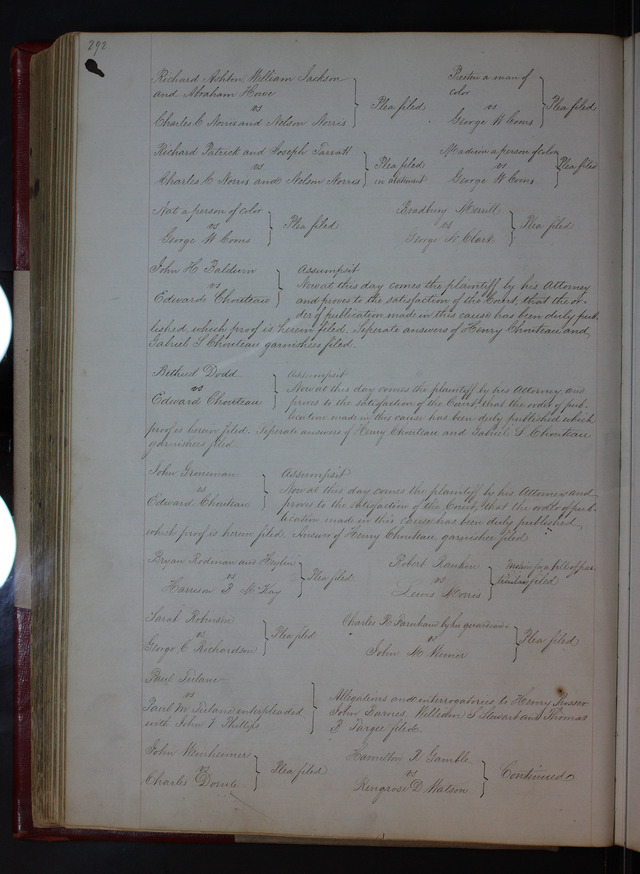 292
Richard Ashton, William Jackson
and Abraham Howe
vs
Charles C Norris and Nelson Norris
Plea filed
Preston a man of
color
vs
George W Coons
Plea filed
Richard Patrick and Joseph Tarratt
vs
Charles C Norris and Nelson Norris
Plea filed
in abatement
Madison a person of color
vs
George W Coons
Plea filed
Nat a person of color
vs
George W Coons
Plea filed
Bradbury Merrill
vs
George R Clark
Plea filed
John H Baldwin
vs
Edward Chouteau
Assumpsit
Now at this day comes the plaintiff by his Attorney
and proves to the satisfaction of the Court, that the or-
der of publication made in this cause has been duly pub
lished which proof is herein filed. Seperate answers of Henry Chouteau and
Gabriel S Chouteau garnishees filed.
Dodd
vs
Edward Chouteau
Assumpsit
Now at this day comes the plaintiff by his Attorney and
proves to the satisfaction of the Court, that the order of pub-
lication made in this cause has been duly published which
proof is herein filed. Seperate answers of Henry Chouteau and Gabriel S Chouteau
garnishees filed.
John
vs
Edward Chouteau
Assumpsit
Now at this day comes the plaintiff by his Attorney and
proves to the satisfaction of the Court, that the order of pub-
lication made in this cause has been duly published
which proof is herein filed. Answer of Henry Chouteau garnishee filed
Bryan Rodman and
vs
Harrison P McKay
Plea filed
Robert Rankin
vs
Lewis Morris
Motion for a bill of par
ticulars filed
Sarah Robinson
vs
George C Richardson
Plea filed
Charles R Farnham by his guardian
vs
John M Wimer
Plea filed
Paul Tulane
vs
Paul M Tulane interpleaded
with John T Phillips
Allegations and interrogatories to Henry
John Barnes, S Stewart and Thomas
filed
John Weinheimer
vs
Charles
Plea filed
Hamilton R Gamble
vs
Ringrose D Watson
Continued